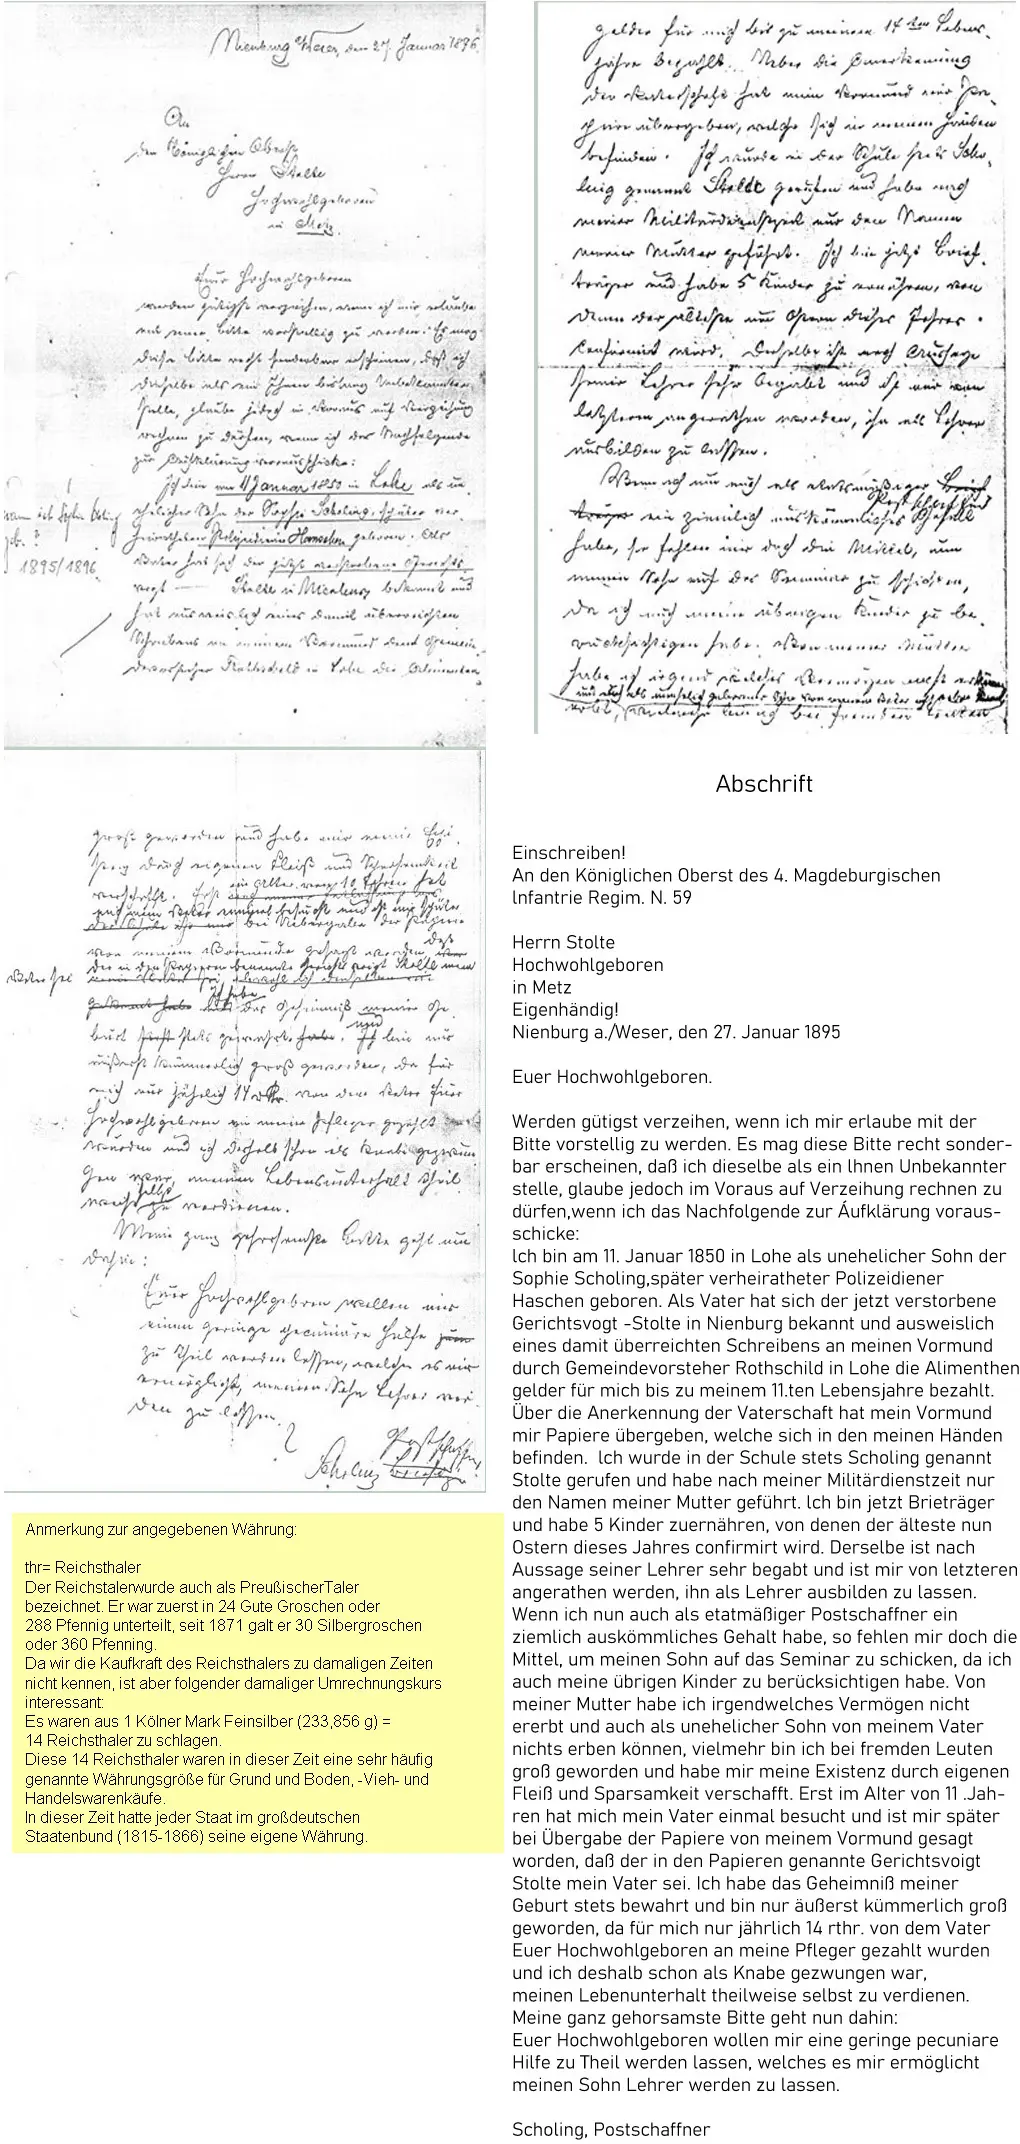 Nienburg a/Weser, den 27. Januar 1896
An
den Königlichen Oberst
Herrn Stolte
Hochwohlgeboren
in Metz.
Euer Hochwohlgeboren
werden gütigst verzeihen, wenn ich mir erlaube
mit einer Bitte vorstellig zu werden. Es mag
diese Bitte recht sonderbar erscheinen, daß ich
dieselbe als ein Ihnen bislang Unbekannter
stelle, glaube jedoch im Voraus auf Verzeihung
rechnen zu dürfen, wenn ich das Nachfolgende
zur Aufklärung vorausschicke:
Ich bin am 11 Januar 1850 in Lohe als un
ehelicher Sohn der Sophie Scholing, später ver
heiratheten Polizeidiener geboren. Als
Vater hat sich der jetzt verstorbene Gerichts
voigt Stolte in Nienburg bekannt und
hat ausweislich eines damit überreichten
Schreibens an meinen Vormund dem Gemein
devorsteher Rothschild in Lohe die Alimenten
1895/1896
gelder für mich bis zu meinem 14ten Lebens-
jahre bezahlt. Ueber die Anerkennung
der Vaterschaft hat mein Vormund mir Pa-
piere übergeben, welche sich in meinen Händen
befinden. Ich wurde in der Schule stets Scho-
ling genannt Stolte gerufen und habe nach
meiner Militärdienstzeit nur den Namen
meiner Mutter geführt. Ich bin jetzt Brief-
träger und habe 5 Kinder zu ernähren, von
denen der älteste nun Ostern dieses Jahres
confirmirt wird. Derselbe ist nach Aussage
seiner Lehrer sehr begabt und ist mir von
letzteren angerathen worden, ihn als Lehrer
ausbilden zu lassen.
Wenn ich nun auch als etatsmäßiger Brief
träger Postschaffner ein ziemlich auskömmliches Gehalt
habe, so fehlen mir doch die Mittel, um
meinen Sohn auf das Seminar zu schicken,
da ich auch meine übrigen Kinder zu be-
rücksichtigen habe. Von meiner Mutter
habe ich irgend welches Vermögen nicht
und auch als unehelich geborener Sohn von meinem Vater
erbt, vielmehr bei fremden Leuten
groß geworden und habe mir meine Exi
stenz durch eigenen Fleiß und Sparsamkeit
verschafft. Erst im Alter von 10 Jahren hat
mich mein Vater einmal besucht und ist mir später
bei Uebergabe der Papiere
von meinem Vormunde gesagt worden, daß
der in den Papieren benannte Gerichtsvoigt Stolte mein
Vater sei
ich habe das Geheimniß meiner Ge
burt stets gewahrt. und bin nur
äußerst kümmerlich groß geworden, da für
mich nur jährlich 14 von dem Vater Euer
Hochwohlgeboren an meine Pfleger gezahlt
wurden und ich deshalb schon als Knabe gezwun
gen war, meinen Lebensunterhalt theil
weise selbst zu verdienen.
Meine ganz gehorsamste Bitte geht nun
dahin:
Euer Hochwohlgeboren wollen mir
eine geringe pecuniäre Hülfe
zu Theil werden lassen, welche es mir
ermöglicht, meinen Sohn Lehrer wer
den zu lassen.
Postschaffner
Scholing
Anmerkung zur angegebenen Währung:
thr= Reichsthaler
Der Reichstalerwurde auch als PreußischerTaler
bezeichnet. Er war zuerst in 24 Gute Groschen oder
288 Pfennig unterteilt, seit 1871 galt er 30 Silbergroschen
oder 360 Pfenning.
Da wir die Kaufkraft des Reichsthalers zu damaligen Zeiten
nicht kennen, ist aber folgender damaliger Umrechnungskurs
interessant:
Es waren aus 1 Kölner Mark Feinsilber (233,856 g) =
14 Reichsthaler zu schlagen.
Diese 14 Reichsthaler waren in dieser Zeit eine sehr häufig
genannte Währungsgröße für Grund und Boden, -Vieh- und
Handelswarenkäufe.
In dieser Zeit hatte jeder Staat im großdeutschen
Staatenbund (1815-1866) seine eigene Währung.
Abschrift
Einschreiben!
An den Königlichen Oberst des 4. Magdeburgischen
Infantrie Regim. N. 59
Herrn Stolte
Hochwohlgeboren
in Metz
Eigenhändig!
Nienburg a./Weser, den 27. Januar 1895
Euer Hochwohlgeboren.
Werden gütigst verzeihen, wenn ich mir erlaube mit der
Bitte vorstellig zu werden. Es mag diese Bitte recht sonder-
bar erscheinen, daß ich dieselbe als ein Ihnen Unbekannter
stelle, glaube jedoch im Voraus auf Verzeihung rechnen zu
dürfen,wenn ich das Nachfolgende zur Áufklärung voraus-
schicke:
Ich bin am 11. Januar 1850 in Lohe als unehelicher Sohn der
Sophie Scholing,später verheiratheter Polizeidiener
Haschen geboren. Als Vater hat sich der jetzt verstorbene
Gerichtsvogt -Stolte in Nienburg bekannt und ausweislich
eines damit überreichten Schreibens an meinen Vormund
durch Gemeindevorsteher Rothschild in Lohe die Alimenthen
gelder für mich bis zu meinem 11.ten Lebensjahre bezahlt.
Über die Anerkennung der Vaterschaft hat mein Vormund
mir Papiere übergeben, welche sich in den meinen Händen
befinden. Ich wurde in der Schule stets Scholing genannt
Stolte gerufen und habe nach meiner Militärdienstzeit nur
den Namen meiner Mutter geführt. Ich bin jetzt Brieträger
und habe 5 Kinder zuernähren, von denen der älteste nun
Ostern dieses Jahres confirmirt wird. Derselbe ist nach
Aussage seiner Lehrer sehr begabt und ist mir von letzteren
angerathen werden, ihn als Lehrer ausbilden zu lassen.
Wenn ich nun auch als etatmäßiger Postschaffner ein
ziemlich auskömmliches Gehalt habe, so fehlen mir doch die
Mittel, um meinen Sohn auf das Seminar zu schicken, da ich
auch meine übrigen Kinder zu berücksichtigen habe. Von
meiner Mutter habe ich irgendwelches Vermögen nicht
ererbt und auch als unehelicher Sohn von meinem Vater
nichts erben können, vielmehr bin ich bei fremden Leuten
groß geworden und habe mir meine Existenz durch eigenen
Fleiß und Sparsamkeit verschafft. Erst im Alter von 11 .Jah-
ren hat mich mein Vater einmal besucht und ist mir später
bei Übergabe der Papiere von meinem Vormund gesagt
worden, daß der in den Papieren genannte Gerichtsvoigt
Stolte mein Vater sei. Ich habe das Geheimniß meiner
Geburt stets bewahrt und bin nur äußerst kümmerlich groß
geworden, da für mich nur jährlich 14 rthr. von dem Vater
Euer Hochwohlgeboren an meine Pfleger gezahlt wurden
und ich deshalb schon als Knabe gezwungen war,
meinen Lebenunterhalt theilweise selbst zu verdienen.
Meine ganz gehorsamste Bitte geht nun dahin:
Euer Hochwohlgeboren wollen mir eine geringe pecuniare
Hilfe zu Theil werden lassen, welches es mir ermöglicht
meinen Sohn Lehrer werden zu lassen.
Scholing, Postschaffner